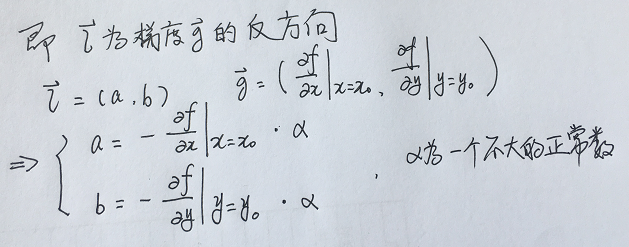 即 l⃗ 为梯度 g⃗ 的反方向
l⃗ = (a, b)  g⃗ = (∂f/∂x|x=x₀, ∂f/∂y|y=y₀)
⇒ { a = - ∂f/∂x|x=x₀ · α
b = - ∂f/∂y|y=y₀ · α , α为一个不大的正常数